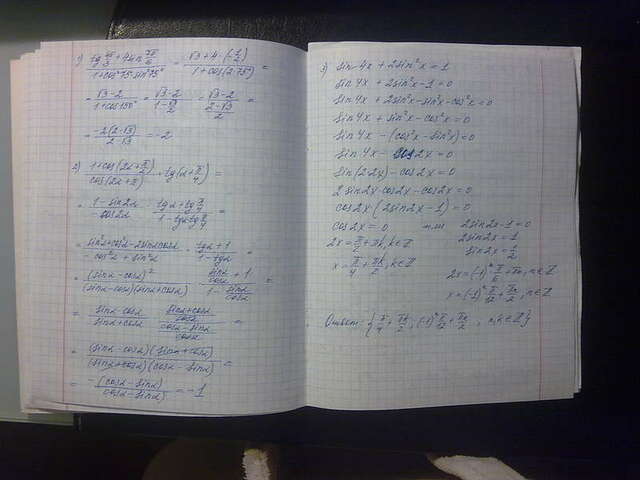 1) (tg π/3 + 4 sin 7π/6) / (1 + cos²75° - sin²75°) = (√3 + 4·(-1/2)) / (1 + cos(2·75°)) =
= (√3 - 2) / (1 + cos150°) = (√3 - 2) / (1 - √3/2) = (√3 - 2) / ((2 - √3)/2) =
= -2(2 - √3) / (2 - √3) = -2
2) (1 + cos(2α + π/2)) / cos(2α + π) · tg(α + π/4) =
= (1 - sin2α) / (-cos2α) · (tgα + tg π/4) / (1 - tgα tg π/4) =
= (sin²α + cos²α - 2sinαcosα) / (-cos²α + sin²α) · (tgα + 1) / (1 - tgα) =
= (sinα - cosα)² / ((sinα - cosα)(sinα + cosα)) · (sinα/cosα + 1) / (1 - sinα/cosα) =
= (sinα - cosα) / (sinα + cosα) · ((sinα + cosα)/cosα) / ((cosα - sinα)/cosα) =
= (sinα - cosα)(sinα + cosα) / ((sinα + cosα)(cosα - sinα)) =
= -(cosα - sinα) / (cosα - sinα) = -1
3) sin4x + 2sin²x = 1
sin4x + 2sin²x - 1 = 0
sin4x + 2sin²x - sin²x - cos²x = 0
sin4x + sin²x - cos²x = 0
sin4x - (cos²x - sin²x) = 0
sin4x - cos2x = 0
sin(2·2x) - cos2x = 0
2sin2x·cos2x - cos2x = 0
cos2x(2sin2x - 1) = 0
cos2x = 0 или 2sin2x - 1 = 0
2x = π/2 + πk, k∈Z 2sin2x = 1
x = π/4 + πk/2, k∈Z sin2x = 1/2
2x = (-1)ⁿ π/6 + πn, n∈Z
x = (-1)ⁿ π/12 + πn/2, n∈Z
Ответ: {π/4 + πk/2, (-1)ⁿ π/12 + πn/2, n,k∈Z}